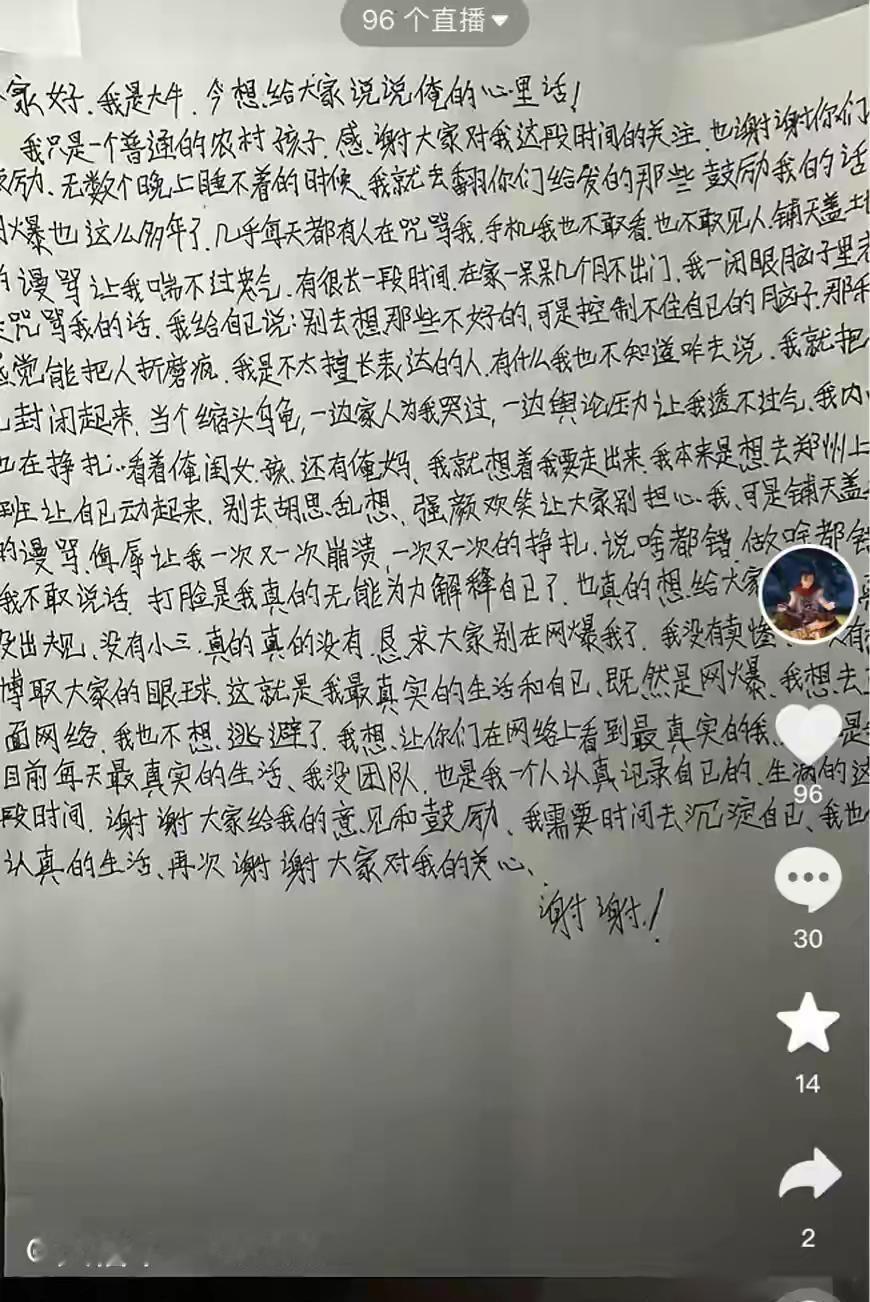 96 个直播
家好.我是大牛.今想给大家说说俺的心里话!
我只是一个普通的农村孩子.感谢大家对我这段时间的关注.也谢谢你们
励.无数个晚上睡不着的时候、我就去翻你们给发的那些鼓励我的话
爆也这么多年了.几乎每天都有人在咒骂我.手机我也不敢看.也不敢见人.铺天盖地
的谩骂让我喘不过来气.有很长一段时间.在家一呆呆几个月不出门.我一闭眼脑子里
咒骂我的话.我给自己说:别去想那些不好的,可是控制不住自己的脑子.那种
感觉能把人折磨疯.我是不太擅长表达的人.有什么我也不知道咋去说.我就把
封闭起来.当个缩头乌龟,一边家人为我哭过,一边舆论压力让我透不过气、我内
也在挣扎..看着俺闺女.孩、还有俺妈、我就想着我要走出来.我本来是想去郑州上
班让自己动起来.别去胡思乱想、强颜欢笑让大家别担心我、可是铺天盖
的谩骂.侮辱让我一次又一次崩溃,一次又一次的挣扎.说啥都错.做啥都错
我不敢说话.打脸是我真的无能为力解释自己了.也真的想给大家
没出规、没有小三.真的真的没有.恳求大家别在网爆我了.我没有卖惨
博取大家的眼球.这就是我最真实的生活和自己、既然是网爆、我想去
面网络.我也不想逃避了.我想让你们在网络上看到最真实的我.是
目前每天最真实的生活、我没团队.也是我一个人认真记录自己的.生病的这
段时间.谢谢大家给我的意见和鼓励、我需要时间去沉淀自己、我也
认真的生活、再次谢谢大家对我的关心、
谢谢.!
96
30
14
2